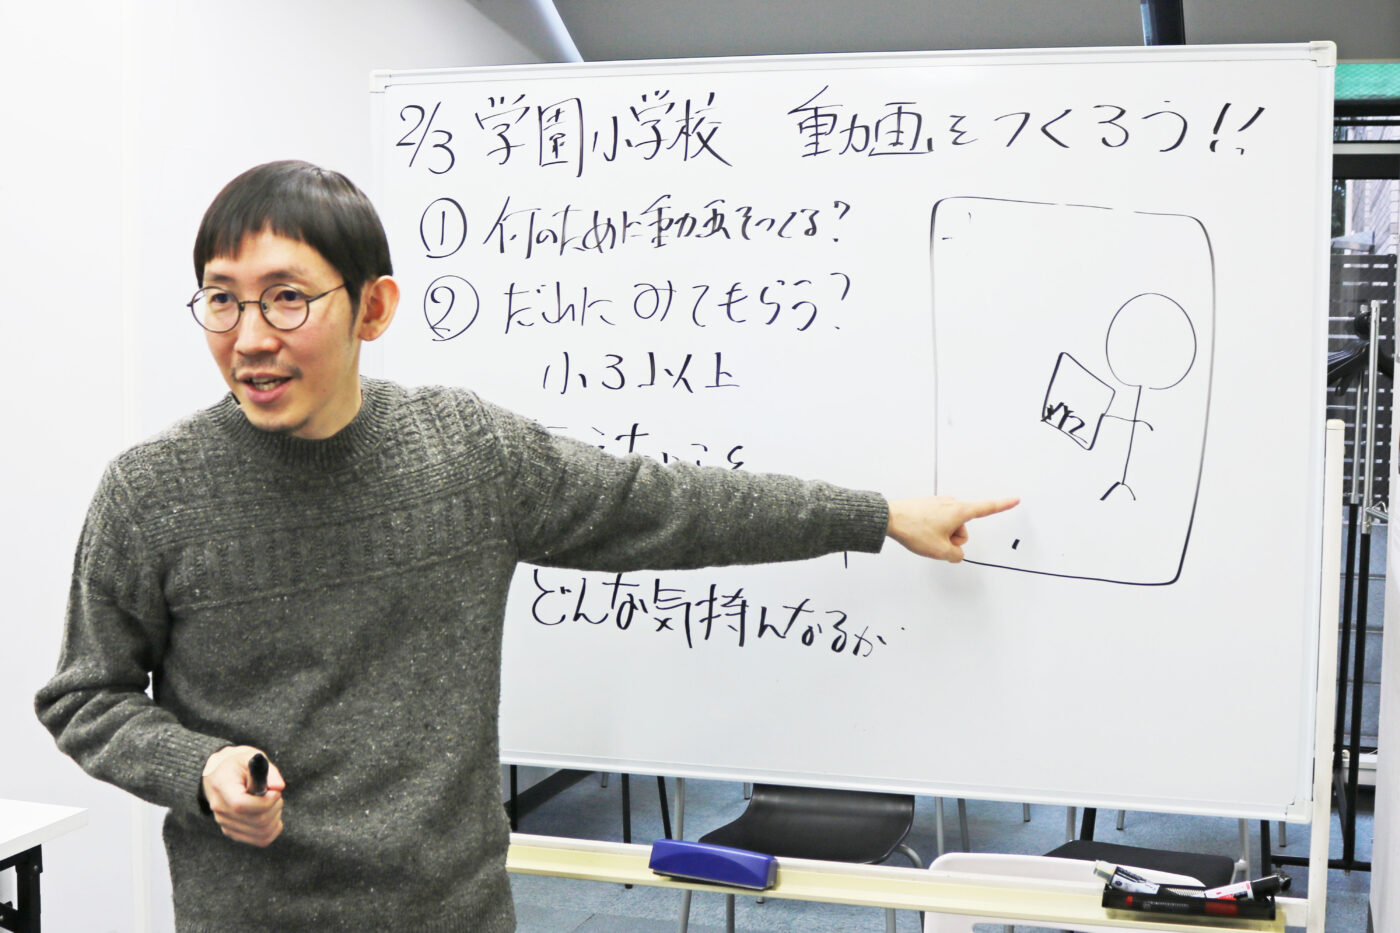 2/3 学園小学校 動画をつくろう!!
① 何のために動画をつくる?
② だれにみてもらう?
小3以上
どんな気持んなるか